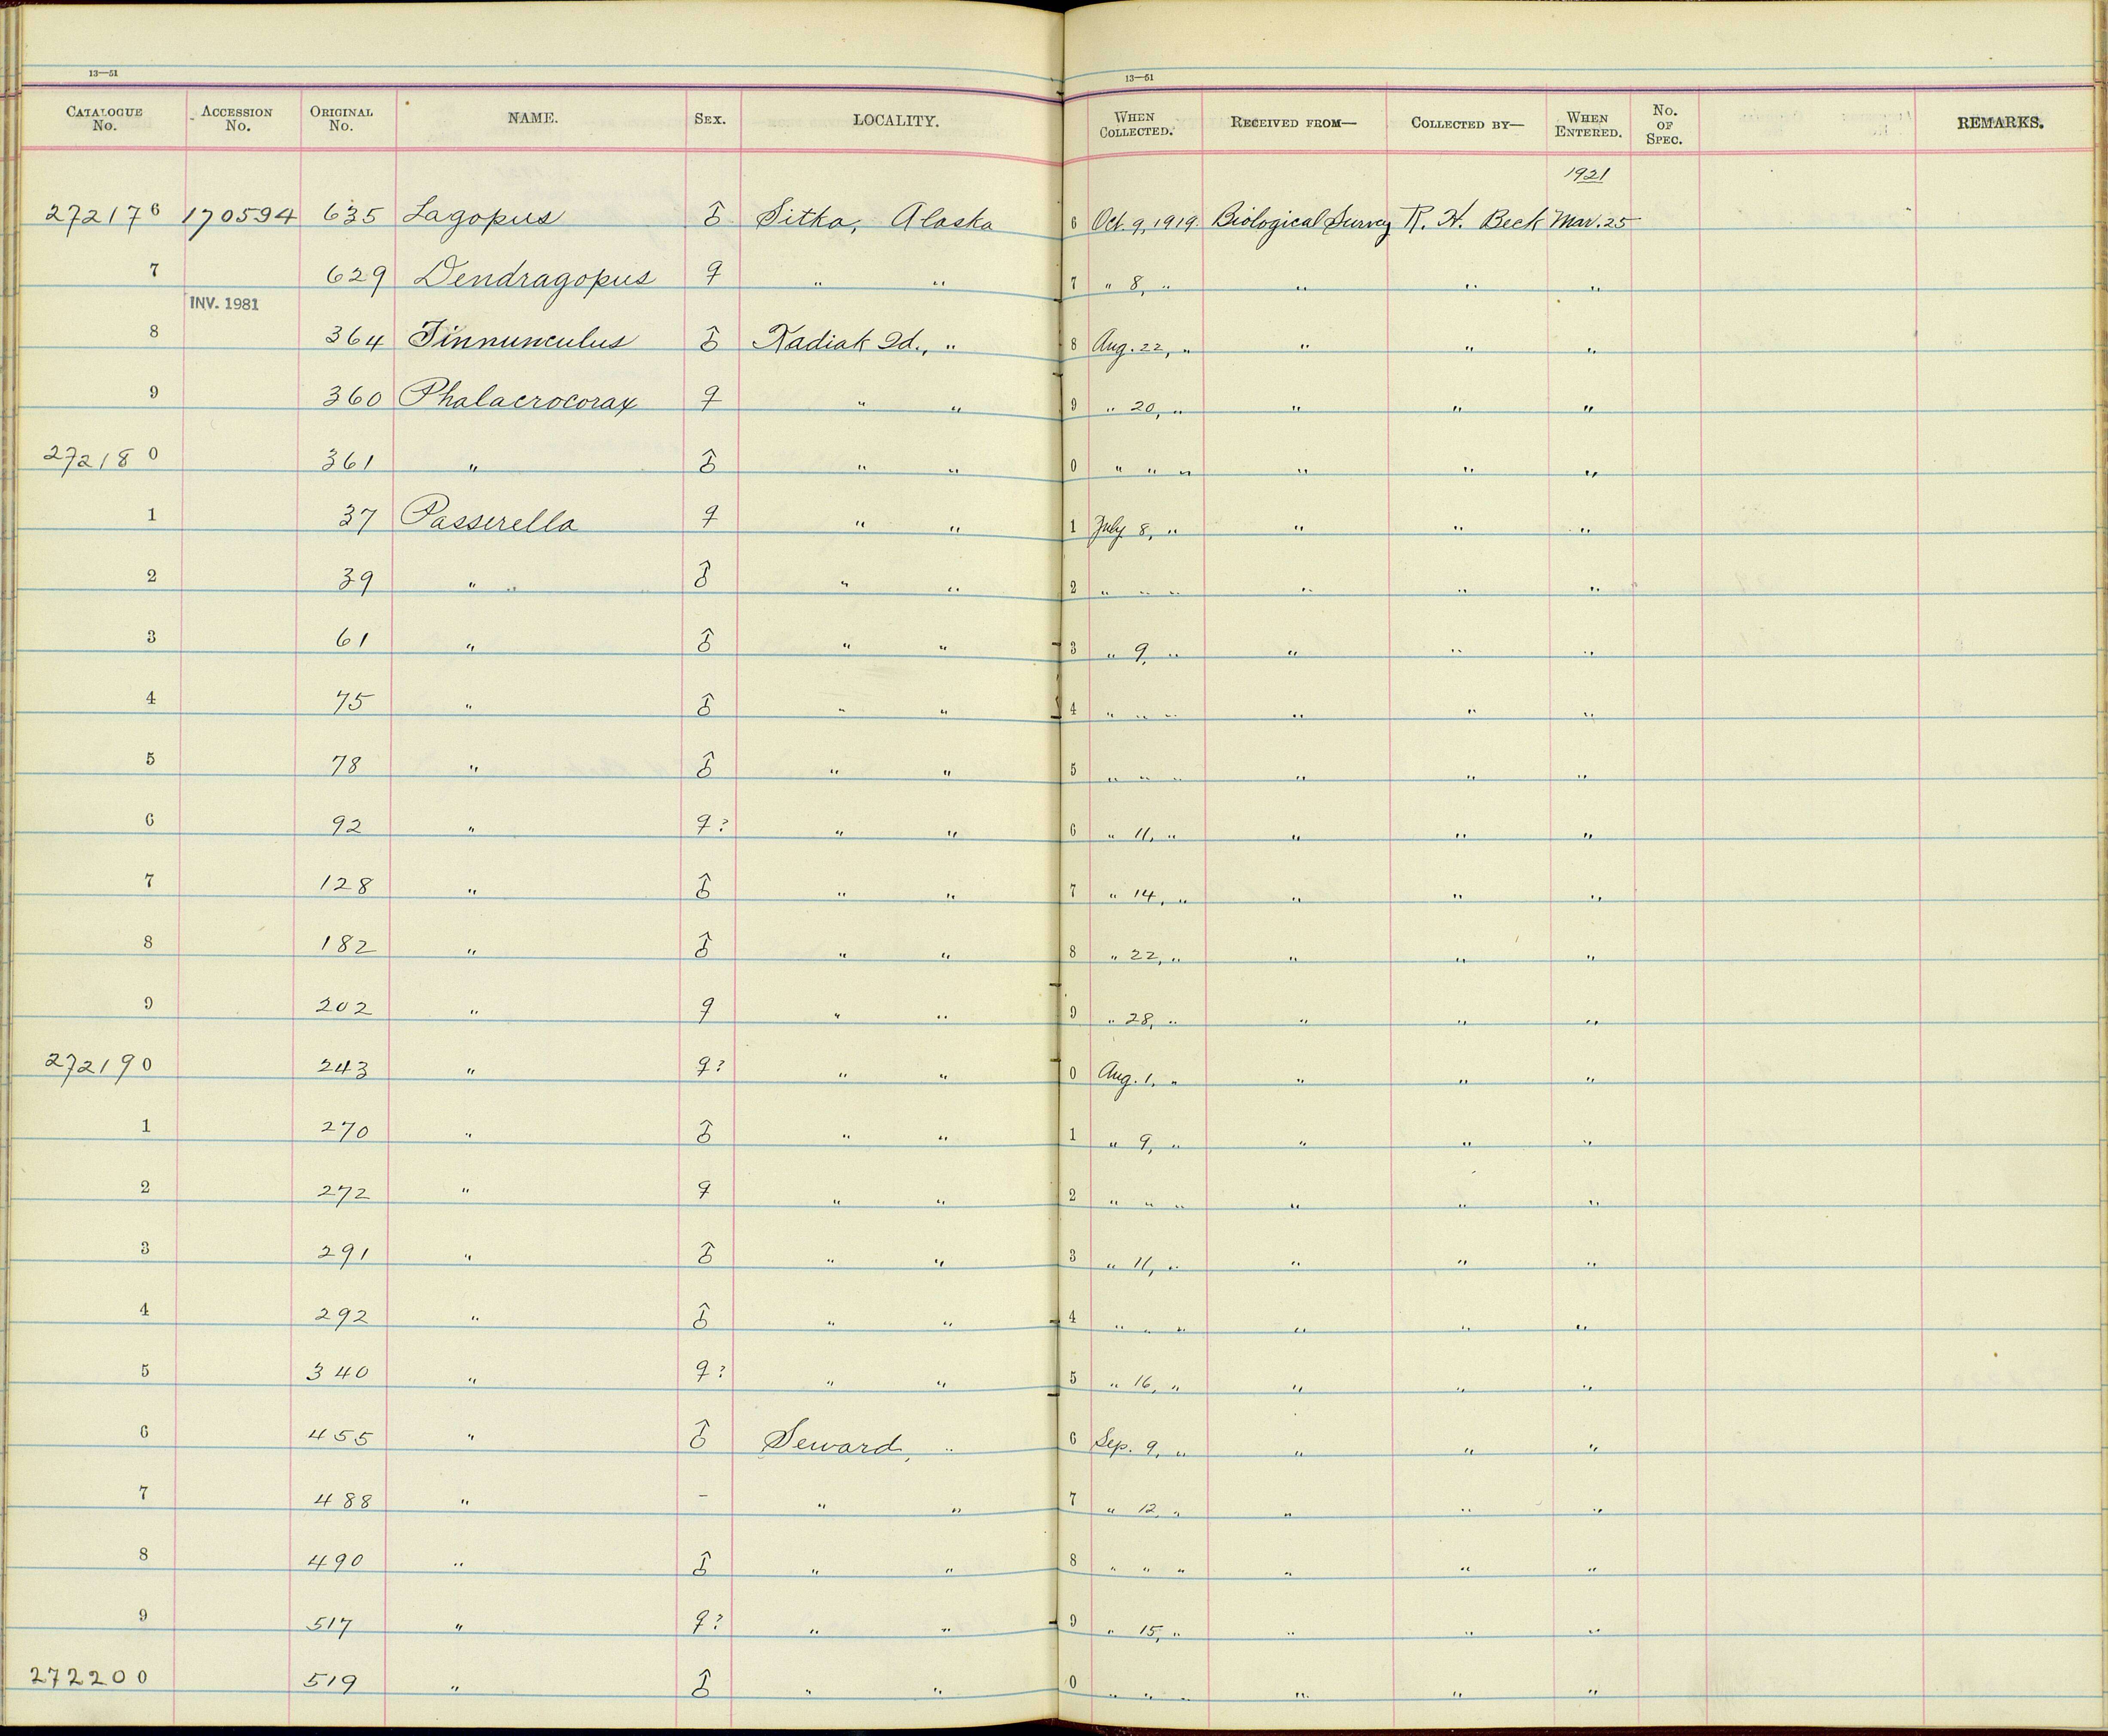 13—51 13—51
CATALOGUE No. ACCESSION No. ORIGINAL No. NAME. SEX. LOCALITY. WHEN COLLECTED. RECEIVED FROM— COLLECTED BY— WHEN ENTERED. No. OF SPEC. REMARKS.
1921
272176 170594 635 Lagopus ♂ Sitka, Alaska 6 Oct. 9, 1919. Biological Survey R. H. Beck Mar. 25
7 629 Dendragopus ♀ " " 7 " 8, " " " "
INV. 1981
8 364 Tinnunculus ♂ Kadiak Id., " 8 Aug. 22, " " " "
9 360 Phalacrocorax ♀ " " 9 " 20, " " " "
272180 361 " ♂ " " 0 " " " " " "
1 37 Passerella ♀ " " 1 July 8, " " " "
2 39 " ♂ " " 2 " " " " " "
3 61 " ♂ " " 3 " 9, " " " "
4 75 " ♂ " " 4 " " " " " "
5 78 " ♂ " " 5 " " " " " "
6 92 " ♀? " " 6 " 11, " " " "
7 128 " ♂ " " 7 " 14, " " " "
8 182 " ♂ " " 8 " 22, " " " "
9 202 " ♀ " " 9 " 28, " " " "
272190 243 " ♀? " " 0 Aug. 1, " " " "
1 270 " ♂ " " 1 " 9, " " " "
2 272 " ♀ " " 2 " " " " " "
3 291 " ♂ " " 3 " 11, " " " "
4 292 " ♂ " " 4 " " " " " "
5 340 " ♀? " " 5 " 16, " " " "
6 455 " ♂ Seward, " 6 Sep. 9, " " " "
7 488 " – " " 7 " 12, " " " "
8 490 " ♂ " " 8 " " " " " "
9 517 " ♀? " " 9 " 15, " " " "
272200 519 " ♂ " " 0 " " " " " "